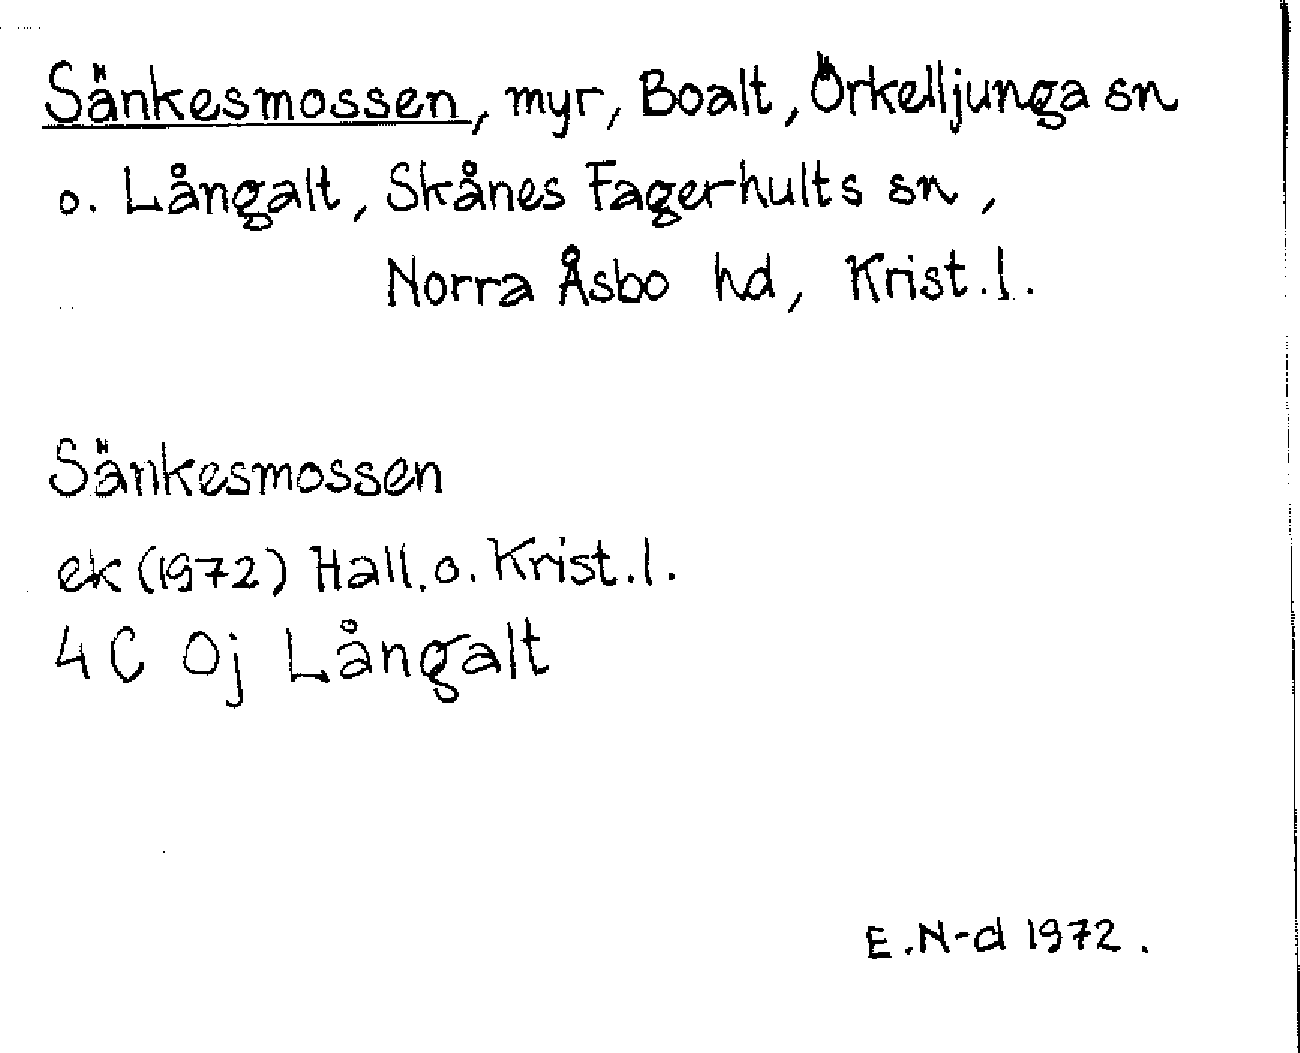 Sänkesmossen, myr, Boalt, Örkelljunga sn
o. Långalt, Skånes Fagerhults sn,
Norra Åsbo hd, Krist.l.
Sänkesmossen
ek (1972) Hall.o. Krist.l.
4 C Oj Långalt
E.N-d 1972.